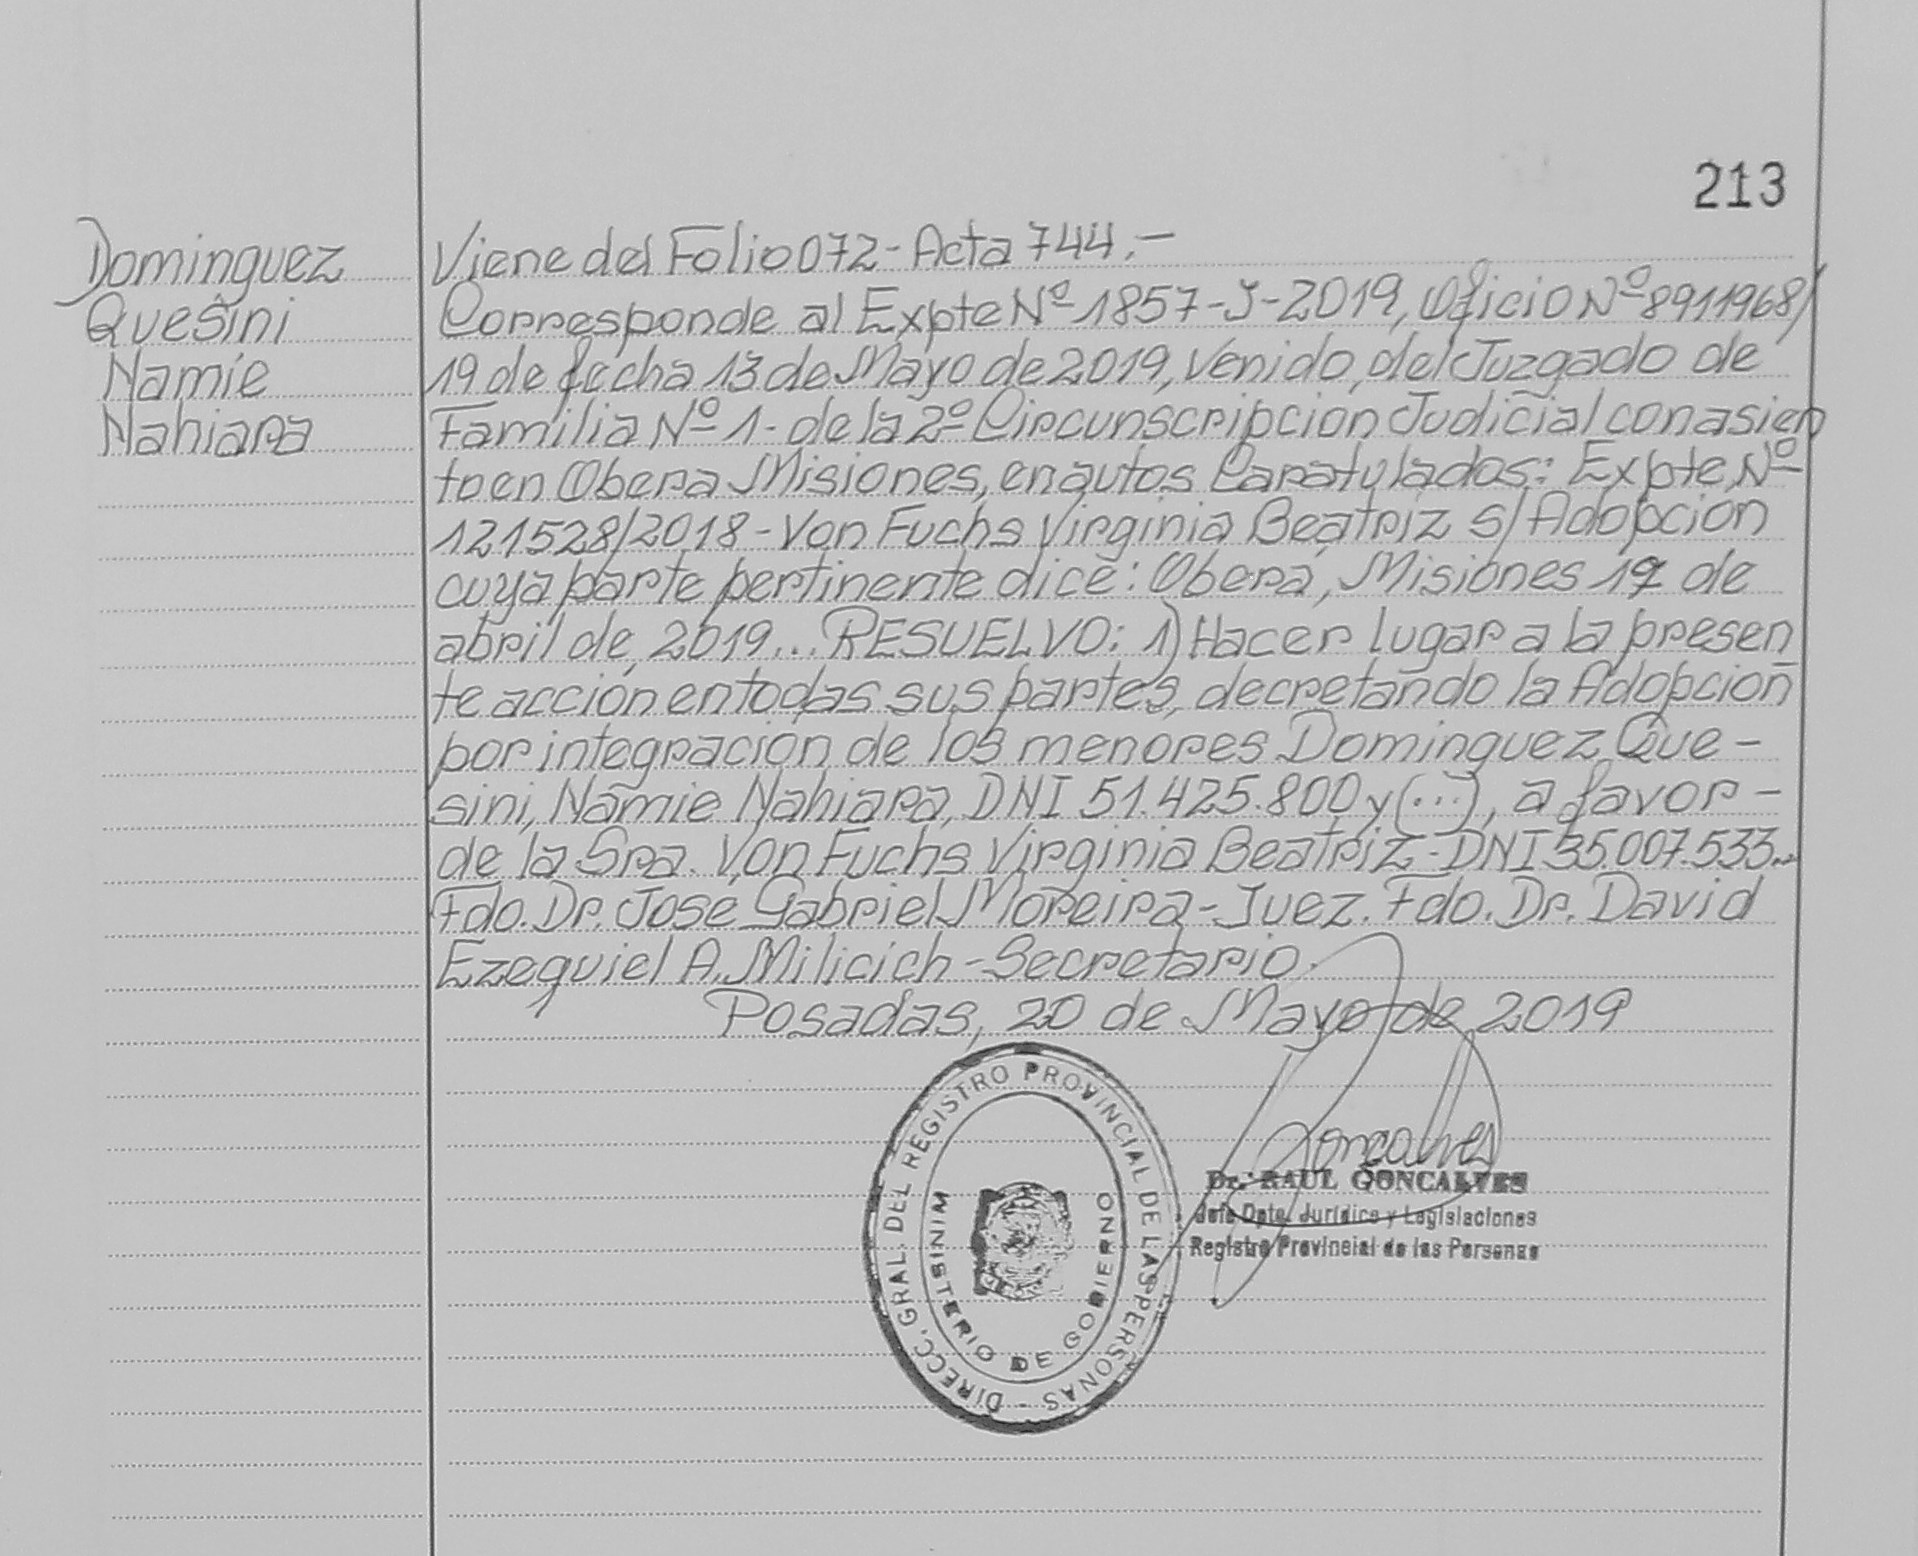 213
Dominguez
Quesini
Namie
Nahiara
Viene del Folio 072 - Acta 744.-
Corresponde al Expte Nº 1857-J-2019, Oficio Nº 8911968/
19 de fecha 13 de Mayo de 2019, venido, del Juzgado de
Familia Nº 1 - de la 2º Circunscripcion Judicial con asien
to en Obera Misiones, en autos Caratulados: Expte Nº
121528/2018 - Von Fuchs Virginia Beatriz s/ Adopcion
cuya parte pertinente dice: Oberá, Misiones de
abril de 2019... RESUELVO: 1) Hacer lugar a la presen
te acción en todas sus partes, decretando la Adopcion
por integracion de los menores Dominguez Que-
sini, Namie Nahiara, DNI 51.425.800 y (...), a favor-
de la Sra. Von Fuchs Virginia Beatriz - DNI 35.007.533
Fdo. Dr. Jose Gabriel Moreira - Juez. Fdo. Dr. David
Ezequiel A. Milicich - Secretario.
Posadas, 20 de Mayo de 2019
DIRECC. GRAL. DEL REGISTRO PROVINCIAL DE LAS PERSONAS -
MINISTERIO DE GOBIERNO
Goncalves
Dr. RAUL GONCALVES
Jefe Dpto. Jurídico y Legislaciones
Registro Provincial de las Personas